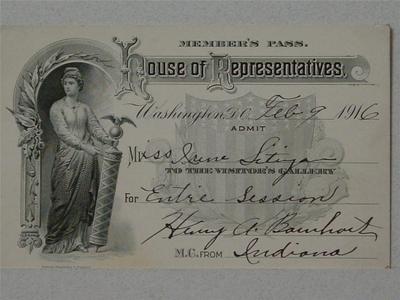 MEMBER'S PASS.
House of Representatives.
Washington, D.C. Feb 9 1916
ADMIT
Miss June
TO THE VISITOR'S GALLERY
For Entire Session
Henry A. Barnhart
M.C. FROM Indiana